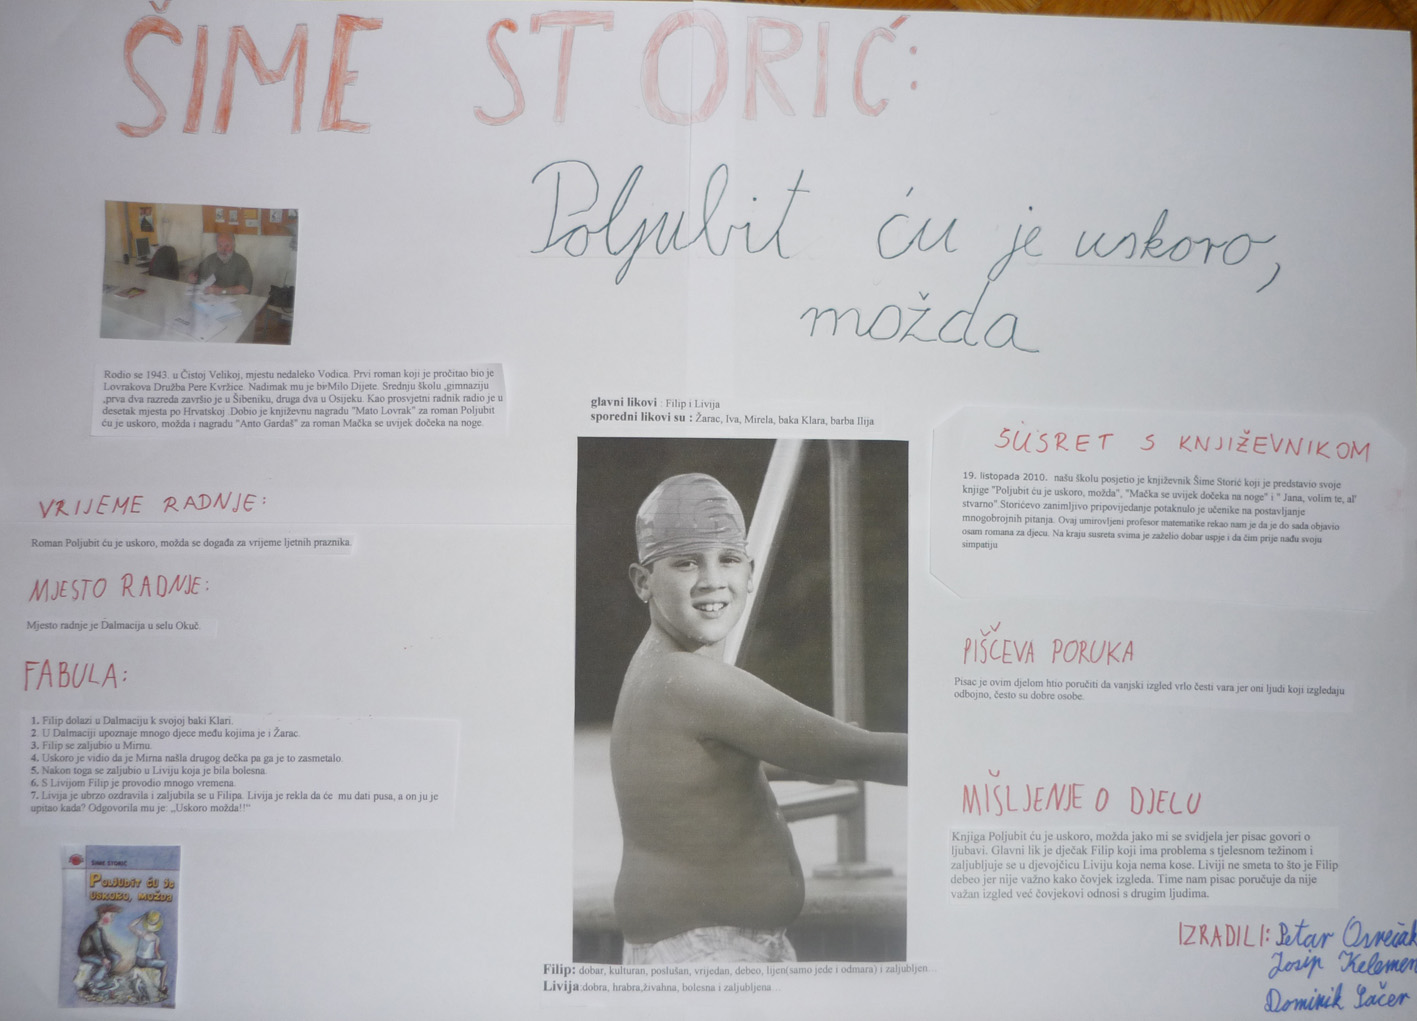 ŠIME STORIĆ:
Poljubit ću je uskoro,
možda
Rodio se 1943. u Čistoj Velikoj, mjestu nedaleko Vodica. Prvi roman koji je pročitao bio je
Lovrakova Družba Pere Kvržice. Nadimak mu je bio Milo Dijete. Srednju školu ,gimnaziju
,prva dva razreda završio je u Šibeniku, druga dva u Osijeku. Kao prosvjetni radnik radio je u
desetak mjesta po Hrvatskoj .Dobio je književnu nagradu "Mato Lovrak" za roman Poljubit
ću je uskoro, možda i nagradu "Anto Gardaš" za roman Mačka se uvijek dočeka na noge.
VRIJEME RADNJE:
Roman Poljubit ću je uskoro, možda se događa za vrijeme ljetnih praznika.
MJESTO RADNJE:
Mjesto radnje je Dalmacija u selu Okuč.
FABULA:
1. Filip dolazi u Dalmaciju k svojoj baki Klari.
2. U Dalmaciji upoznaje mnogo djece među kojima je i Žarac.
3. Filip se zaljubio u Mirnu.
4. Uskoro je vidio da je Mirna našla drugog dečka pa ga je to zasmetalo.
5. Nakon toga se zaljubio u Liviju koja je bila bolesna.
6. S Livijom Filip je provodio mnogo vremena.
7. Livija je ubrzo ozdravila i zaljubila se u Filipa. Livija je rekla da će mu dati pusa, a on ju je
upitao kada? Odgovorila mu je: „Uskoro možda!!"
ŠIME STORIĆ
POLJUBIT ĆU JE
USKORO, MOŽDA
glavni likovi : Filip i Livija
sporedni likovi su : Žarac, Iva, Mirela, baka Klara, barba Ilija
Filip: dobar, kulturan, poslušan, vrijedan, debeo, lijen(samo jede i odmara) i zaljubljen...
Livija:dobra, hrabra,živahna, bolesna i zaljubljena...
SUSRET S KNJIŽEVNIKOM
19. listopada 2010. našu školu posjetio je književnik Šime Storić koji je predstavio svoje
knjige "Poljubit ću je uskoro, možda", "Mačka se uvijek dočeka na noge" i " Jana, volim te, al'
stvarno" Storićevo zanimljivo pripovijedanje potaknulo je učenike na postavljanje
mnogobrojnih pitanja. Ovaj umirovljeni profesor matematike rekao nam je da je do sada objavio
osam romana za djecu. Na kraju susreta svima je zaželio dobar uspje i da čim prije nađu svoju
simpatiju
PIŠČEVA PORUKA
Pisac je ovim djelom htio poručiti da vanjski izgled vrlo česti vara jer oni ljudi koji izgledaju
odbojno, često su dobre osobe.
MIŠLJENJE O DJELU
Knjiga Poljubit ću je uskoro, možda jako mi se svidjela jer pisac govori o
ljubavi. Glavni lik je dječak Filip koji ima problema s tjelesnom težinom i
zaljubljuje se u djevojčicu Liviju koja nema kose. Liviji ne smeta to što je Filip
debeo jer nije važno kako čovjek izgleda. Time nam pisac poručuje da nije
važan izgled već čovjekovi odnosi s drugim ljudima.
IZRADILI: Petar
Josip Kelemen
Dominik Sačer